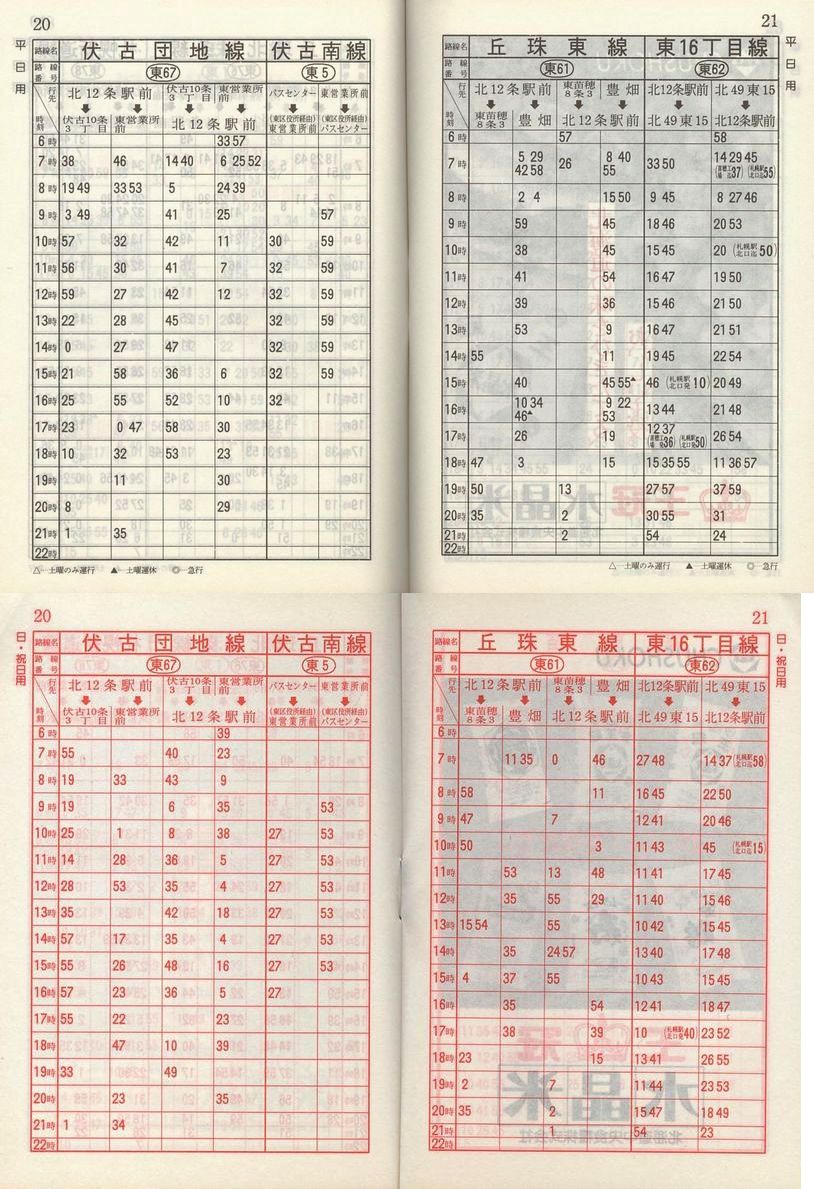 20
平日用
路線名 伏古団地線 伏古南線
路線番号 東67 東5
行先 北12条駅前 伏古10条3丁目 東営業所前 バスセンター 東営業所前
時刻 伏古10条3丁目 東営業所前 北12条駅前 (東区役所経由)東営業所前 (東区役所経由)バスセンター
6時 33 57
7時 38 46 14 40 6 25 52
8時 19 49 33 53 5 24 39
9時 3 49 41 25 57
10時 57 32 42 11 30 59
11時 56 30 41 7 32 59
12時 59 27 42 12 32 59
13時 22 28 45 32 59
14時 0 27 47 32 59
15時 21 58 36 6 32 59
16時 25 55 52 10 32
17時 23 0 47 58 30
18時 10 32 53 23
19時 11 30
20時 8 29
21時 1 35
22時
△ 土曜のみ運行 ▲ 土曜運休 ◎ 急行
21
平日用
路線名 丘珠東線 東16丁目線
路線番号 東61 東62
行先 北12条駅前 東苗穂8条3 豊畑 北12条駅前 北49東15
時刻 東苗穂8条3 豊畑 北12条駅前 北49東15 北12条駅前
6時 57 58
7時 5 29 42 58 26 8 40 55 33 50 14 29 45 37 (札幌駅北口迄55)
8時 2 4 15 50 9 45 8 27 46
9時 59 45 18 46 20 53
10時 38 45 15 45 20 (札幌駅北口迄50)
11時 41 54 16 47 19 50
12時 39 36 15 46 21 50
13時 53 9 16 47 21 51
14時 55 11 19 45 22 54
15時 40 45 55▲ 46 (札幌駅北口発10) 20 49
16時 10 34 46▲ 9 22 53 13 44 21 48
17時 26 19 12 37 36 (札幌駅北口発50) 26 54
18時 47 3 15 15 35 55 11 36 57
19時 50 13 27 57 37 59
20時 35 2 30 55 31
21時 2 54 24
22時
△ 土曜のみ運行 ▲ 土曜運休 ◎ 急行
20
日・祝日用
路線名 伏古団地線 伏古南線
路線番号 東67 東5
行先 北12条駅前 伏古10条3丁目 東営業所前 バスセンター 東営業所前
時刻 伏古10条3丁目 東営業所前 北12条駅前 (東区役所経由)東営業所前 (東区役所経由)バスセンター
6時 39
7時 55 40 23
8時 19 33 43 9
9時 19 6 35 53
10時 25 1 8 38 27 53
11時 14 28 36 5 27 53
12時 28 53 35 4 27 53
13時 35 42 18 27 53
14時 57 17 35 4 27 53
15時 55 26 48 16 27 53
16時 57 23 36 5 27
17時 55 22 23
18時 47 10 39
19時 33 49
20時 23 35
21時 1 34
22時
21
日・祝日用
路線名 丘珠東線 東16丁目線
路線番号 東61 東62
行先 北12条駅前 東苗穂8条3 豊畑 北12条駅前 北49東15
時刻 東苗穂8条3 豊畑 北12条駅前 北49東15 北12条駅前
6時
7時 11 35 0 46 27 48 14 37 (札幌駅北口迄58)
8時 58 11 16 45 22 50
9時 47 7 12 41 20 46
10時 50 3 11 43 45 (札幌駅北口迄15)
11時 53 13 48 11 41 17 45
12時 35 55 29 11 40 15 46
13時 15 54 55 10 42 15 45
14時 35 24 57 13 40 17 48
15時 4 37 55 10 43 15 45
16時 35 54 12 41 18 47
17時 38 39 10 (札幌駅北口発40) 23 52
18時 23 15 13 41 26 55
19時 2 7 11 44 23 53
20時 35 2 15 47 18 49
21時 1 54 23
22時